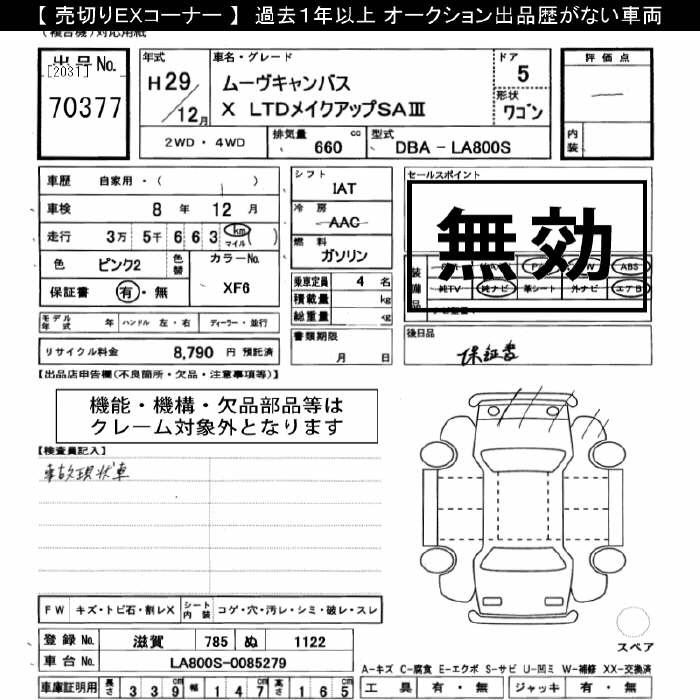 【 売切りEXコーナー 】 過去１年以上 オークション出品歴がない車両
(複合機)対応用紙
出品No.
[2031]
70377
年式
H29/12月
車名・グレード
ムーヴキャンバス
X LTDメイクアップSAⅢ
ドア
5
形状
ワゴン
評価点
内装
2WD・4WD
排気量 660 cc
型式 DBA-LA800S
車歴 自家用・( )
車検 8年 12月
走行 3万 5千 6 6 3 km マイル ( )
色 ピンク2 色替
カラーNo. XF6
保証書 有・無
シフト IAT
冷房 AAC
燃料 ガソリン
乗車定員 4 名
積載量 kg
総重量 kg
セールスポイント
無効
装備品
ABS
純TV 純ナビ 革シート 外ナビ エアB
モデル年式 年 ハンドル 左・右 ディーラー・並行
リサイクル料金 8,790 円 預託済
書類期限
月 日
後日品
保証書
【出品店申告欄(不良箇所・欠品・注意事項等)】
機能・機構・欠品部品等は
クレーム対象外となります
【検査員記入】
事故現状車
FW キズ・トビ石・割レX シート内装 コゲ・穴・汚レ・シミ・破レ・スレ
登録No. 滋賀 785 ぬ 1122
車台No. LA800S-0085279
車庫証明用 長さ 3 3 9 cm 幅 1 4 7 cm 高さ 1 6 5 cm
スペア
A-キズ C-腐食 E-エクボ S-サビ U-凹ミ W-補修 XX-交換済
工具 有・無 ジャッキ 有・無